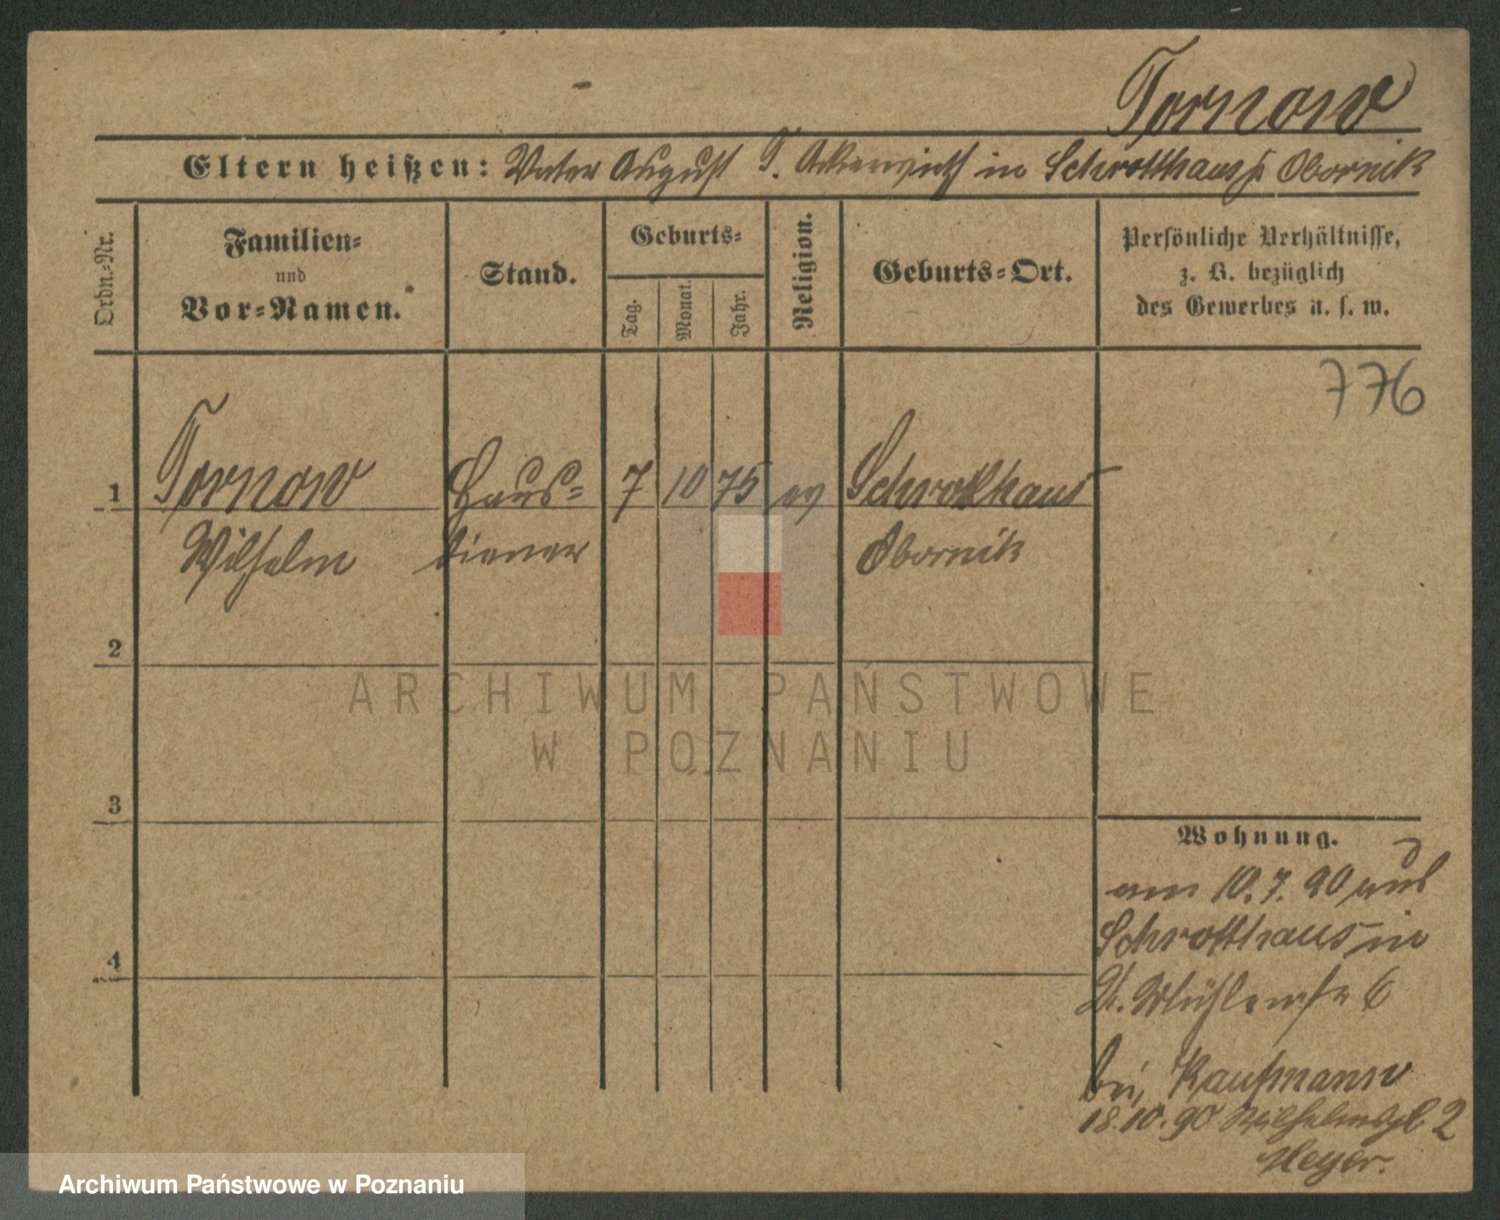 Tornow
Eltern heißen: Vater August T. Ackerwirth in Schrotthaus Obornik
Ordn.-Nr.
Familien-
und
Vor-Namen.
Stand.
Geburts-
Tag.
Monat.
Jahr.
Religion.
Geburts-Ort.
Persönliche Verhältnisse,
z. B. bezüglich
des Gewerbes u. s. w.
776
1 Tornow Haus- 7 10 75 ev Schrotthaus
Wilhelm diener Obornik
2
ARCHIWUM PAŃSTWOWE
W POZNANIU
3
Wohnung.
am 10.7.90 aus
Schrotthaus in
St. Mühlenstr 6
4
bei Kaufmann
18.10.90 Wilhelmspl 2
Meyer.
Archiwum Państwowe w Poznaniu